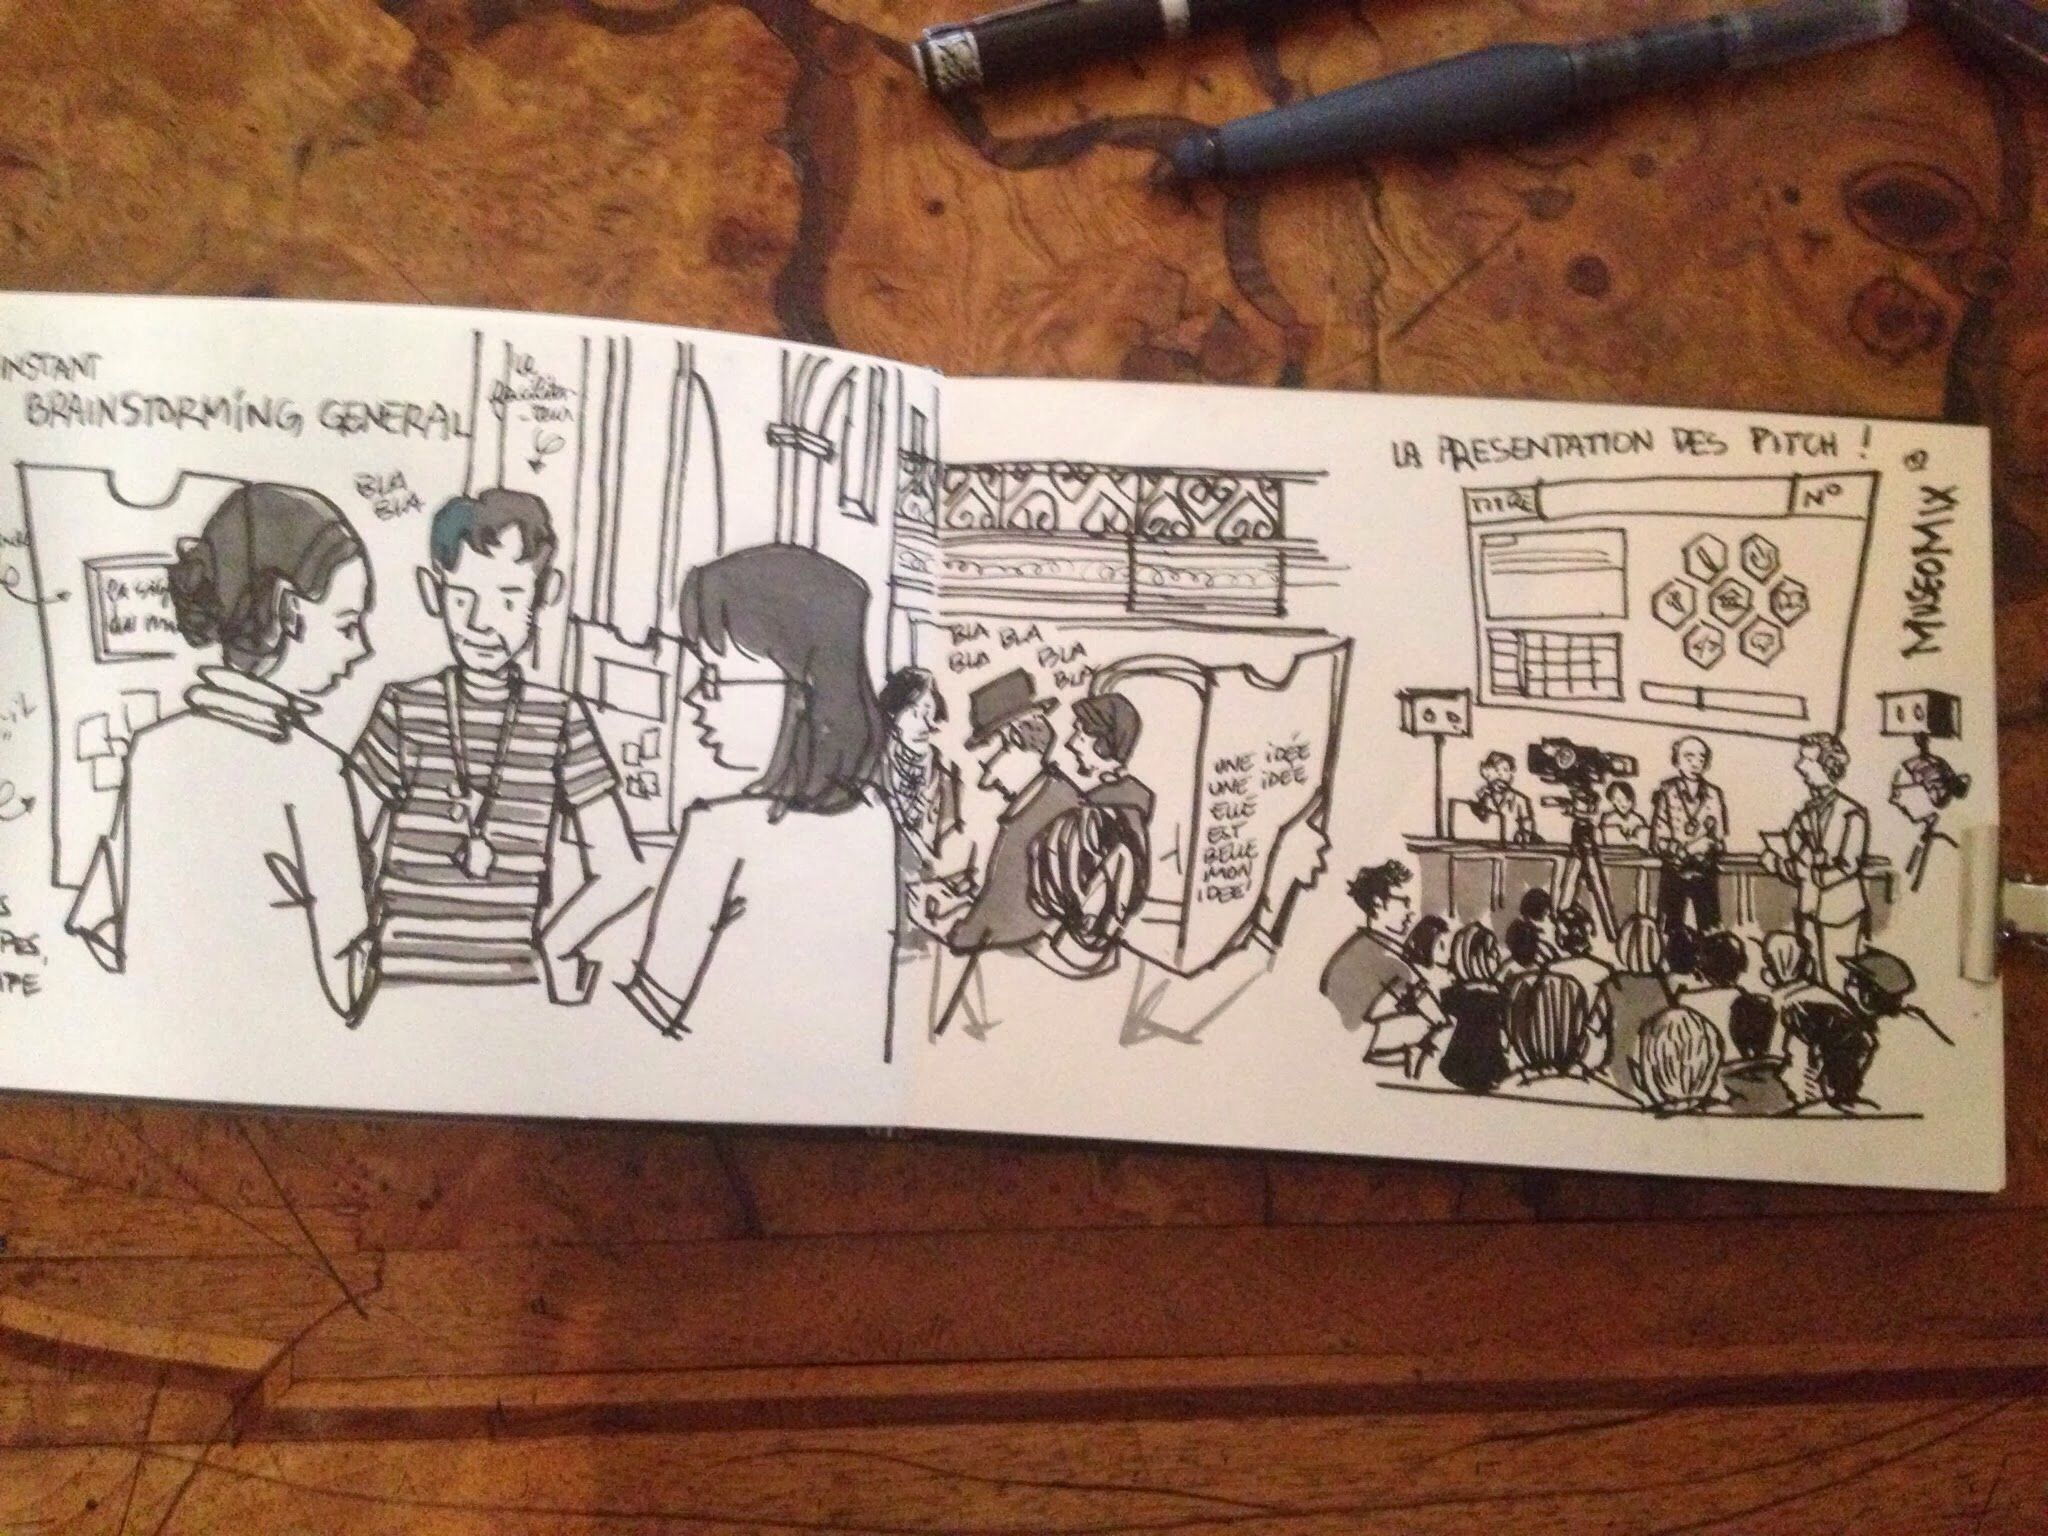 INSTANT
BRAINSTORMING GENERAL
Le
facilita-
-teur
BLA
BLA
BLA BLA
BLA BLA
BLA
UNE IDÉE
UNE IDÉE
ELLE
EST
BELLE
MON
IDÉE
LA PRESENTATION DES PITCH !
TITRE
N°
MUSEOMIX